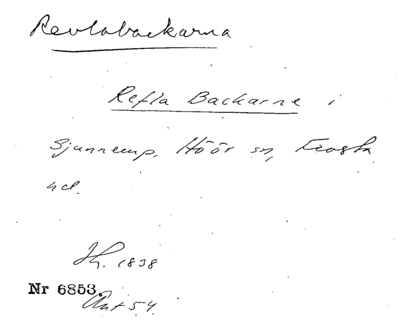 Revlabackarna
Refla Backarne i
Sjunnerup, Höör sn, Frosta
hd.
Sh. 1838
Nr 6853.
Akt 54.